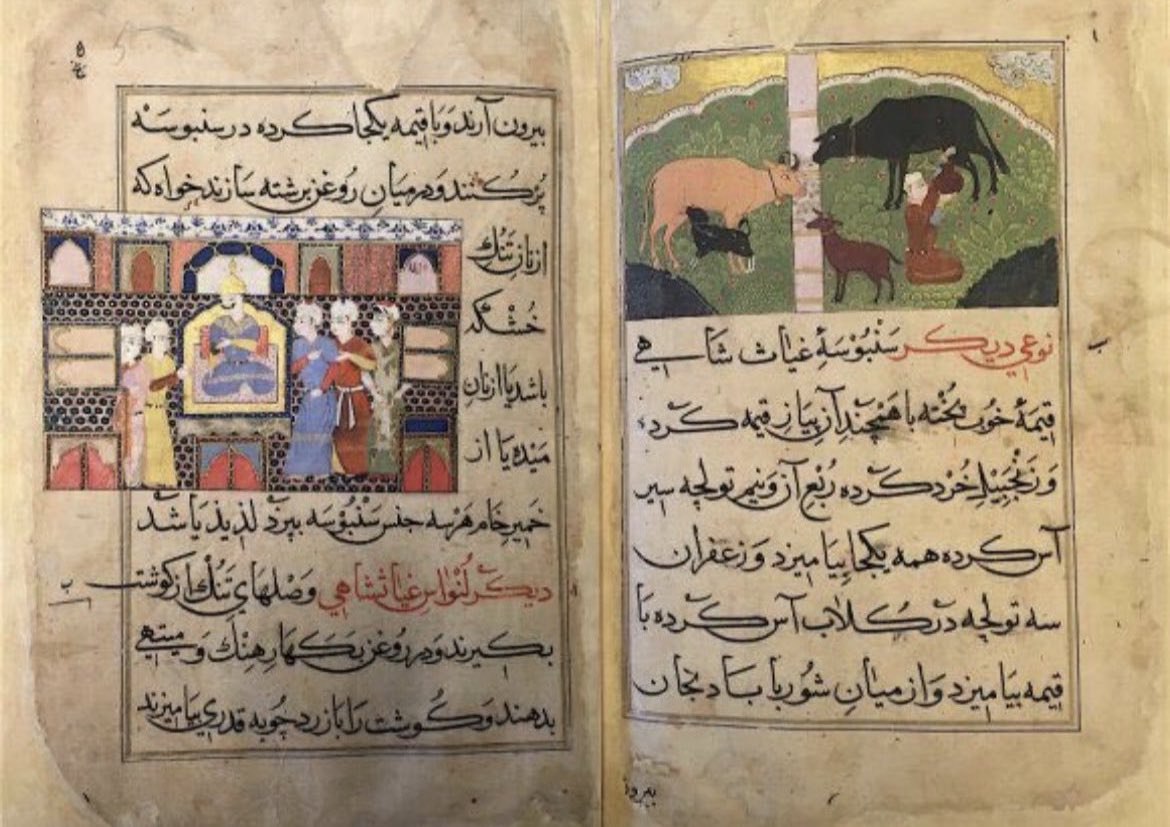 نوعی دیکر سنبوسهٔ غیاث شاهی
قیمهٔ خوب پخته با همچند آن پیاز قیمه کرده
و زنجبیل خرد کرده ربع آن و نیم تولچه سیر
آس کرده همه یکجا بیامیزد و زعفران
سه تولچه در کلاب آس کرده با
قیمه بیامیزد و از میان شوربا بادنجان
بیرون
بیرون آرند و با قیمه یکجا کرده در سنبوسه
پر کنند و در میان روغن برشته سازند خواه که
از نان تنک
خشکه
باشد یا از نان
میده یا از
خمیر خام هر سه جنس سنبوسه بپزد لذیذ باشد
دیکر غیاثشاهی وصلهای تنک از کوشت
بکیرند و در روغن بکهار هنک و میتهی
بدهند و کوشت را با زردچوبه قدری بیامیزند